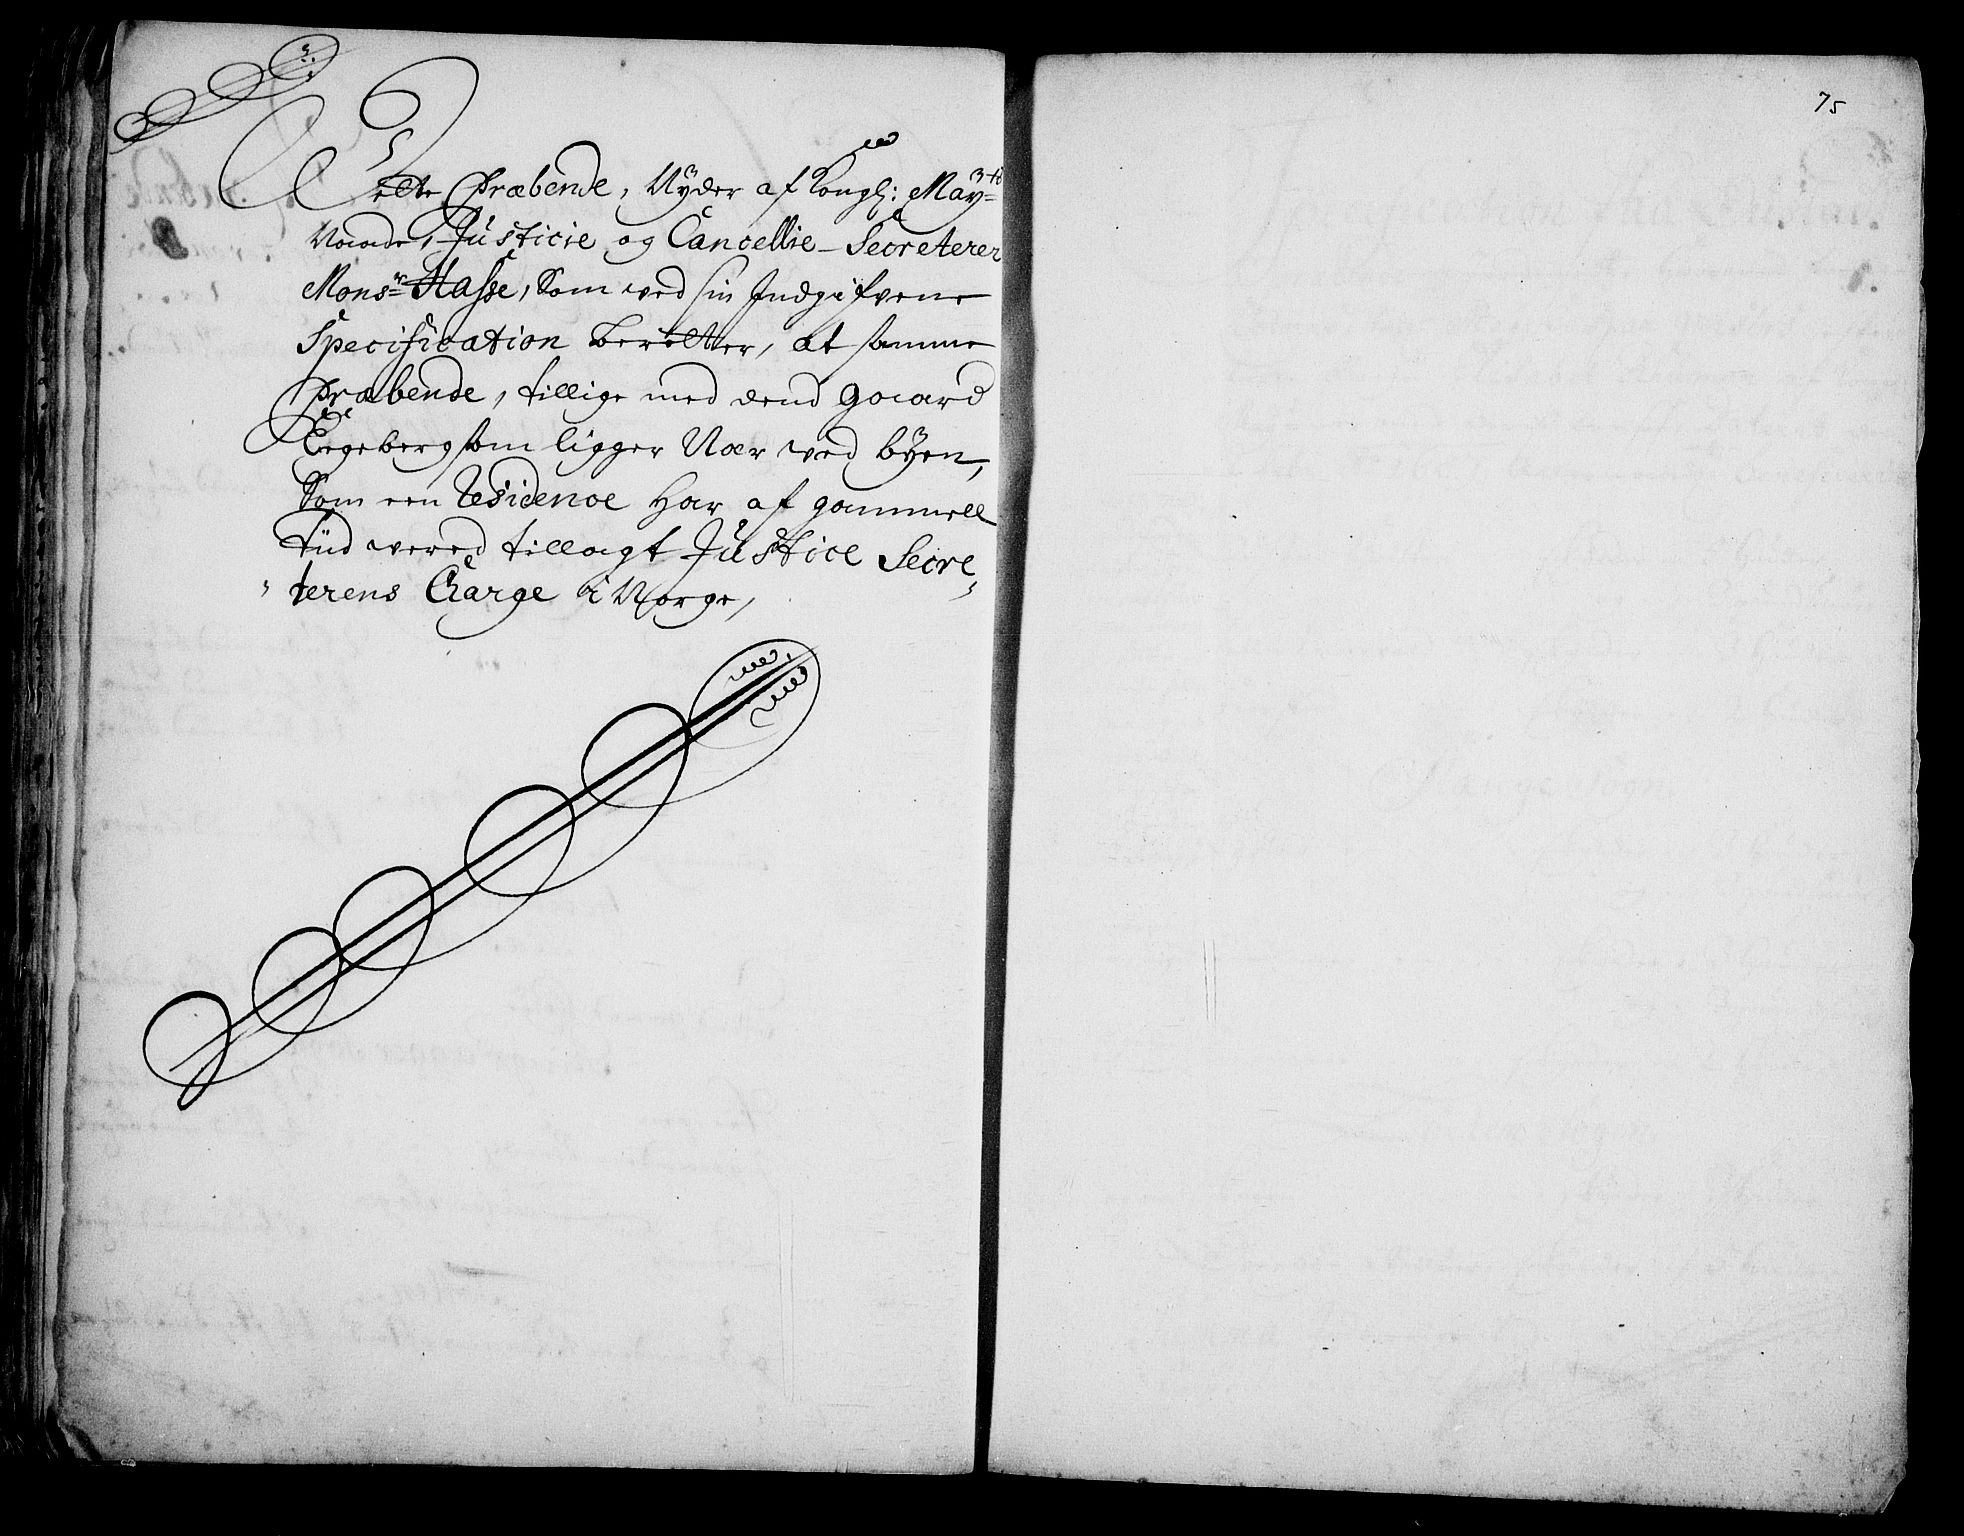 Dette Præbende, Nÿder af Kongl: Maÿ=ts
Naade, Justicie og Cancellie-Secreterer
Monsr= Hasse, Som ved sin Indgifvene
Specification beretter, at samme
Præbende, tillige med dend Gaard
Eegeberg som ligger Nær ved bÿen,
Som een Residence har af gammell
tiid vered tillagt Justice Secre-
terens Charge i Norge,
75